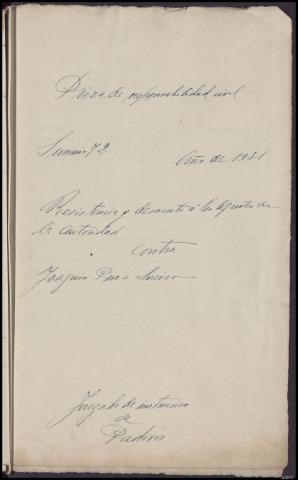 Pieza de responsabilidad civil
Sumario 72 Año de 1921
Resistencia y desacato á los Agentes de
la autoridad
contra
Joaquin
Juzgado de instruccion
de
Padron